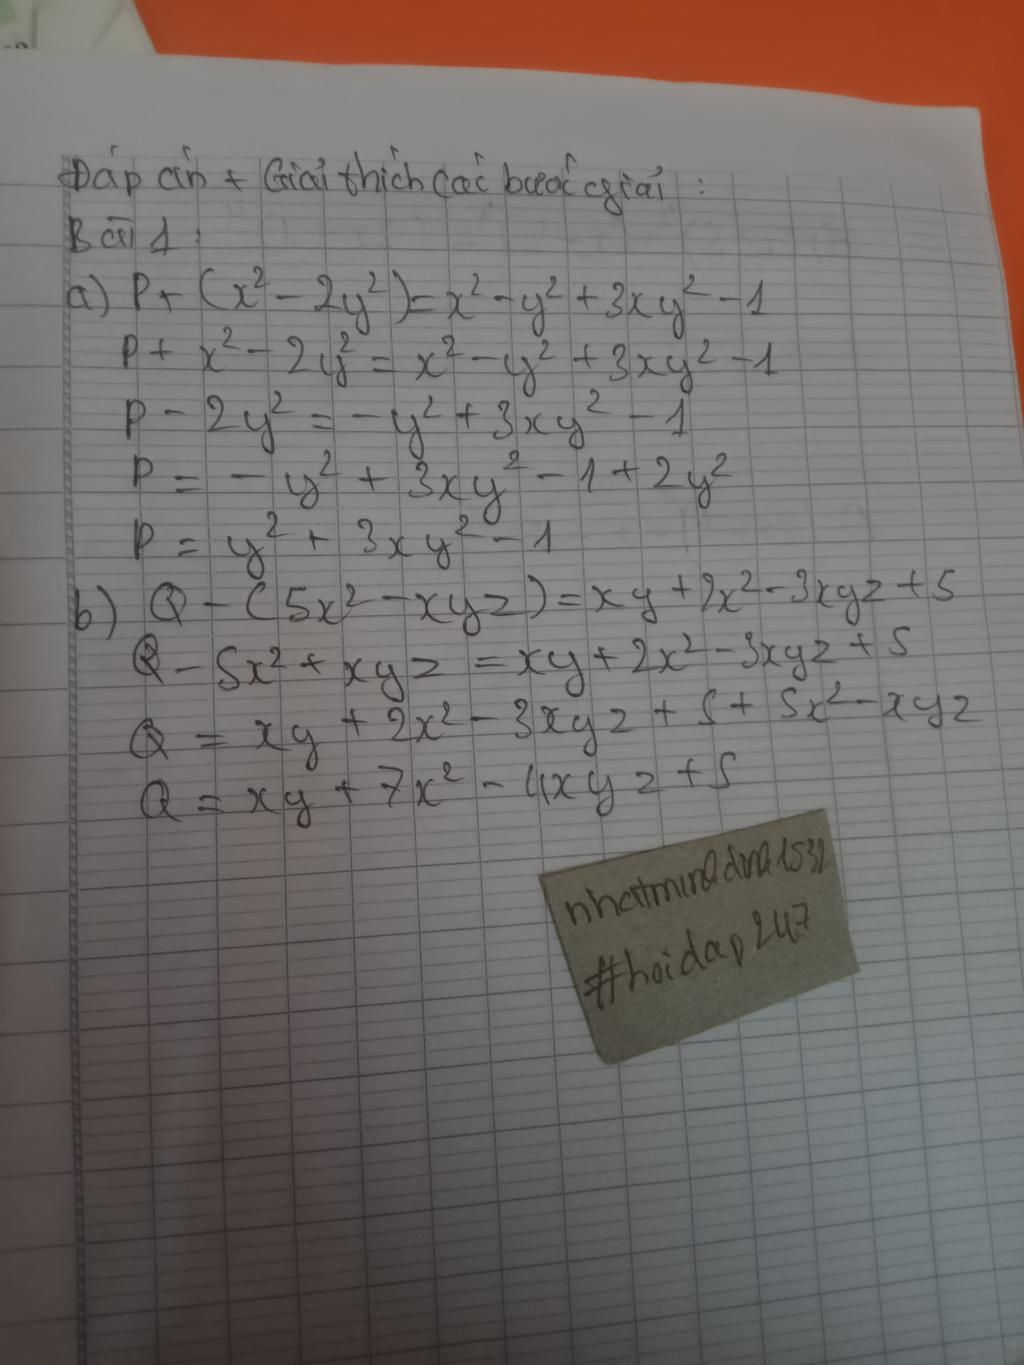 Đáp án + Giải thích các bước giải :
Bài 1 :
a) P + (x² - 2y²) = x² - y² + 3xy² - 1
P + x² - 2y² = x² - y² + 3xy² - 1
P - 2y² = - y² + 3xy² - 1
P = - y² + 3xy² - 1 + 2y²
P = y² + 3xy² - 1
b) Q - (5x² - xyz) = xy + 2x² - 3xyz + 5
Q - 5x² + xyz = xy + 2x² - 3xyz + 5
Q = xy + 2x² - 3xyz + 5 + 5x² - xyz
Q = xy + 7x² - 4xyz + 5
#hoidap247